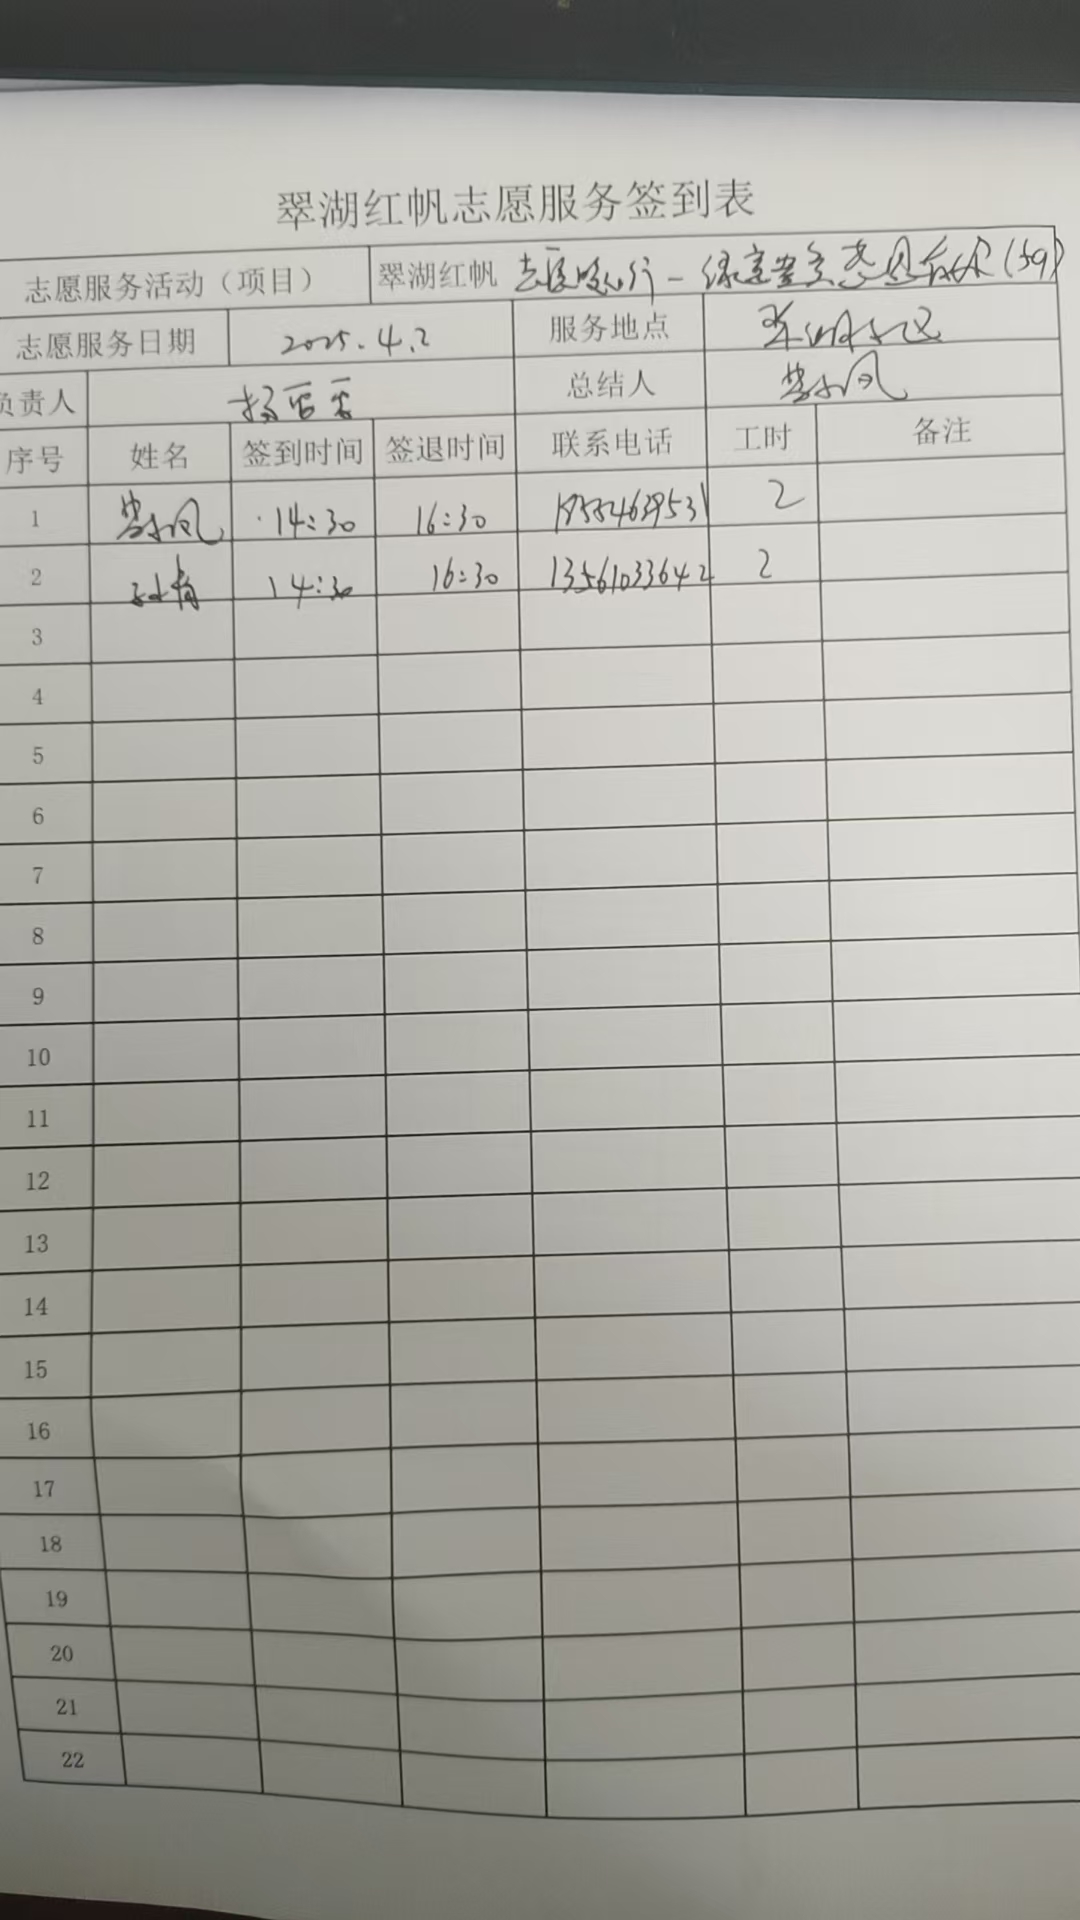 翠湖红帆志愿服务签到表
志愿服务活动（项目） 翠湖红帆 志愿 行 - (59)
志愿服务日期 2025.4.2 服务地点 翠湖社区
负责人 总结人
序号 姓名 签到时间 签退时间 联系电话 工时 备注
1 14:30 16:30 2
2 14:30 16:30 13561033642 2
3
4
5
6
7
8
9
10
11
12
13
14
15
16
17
18
19
20
21
22